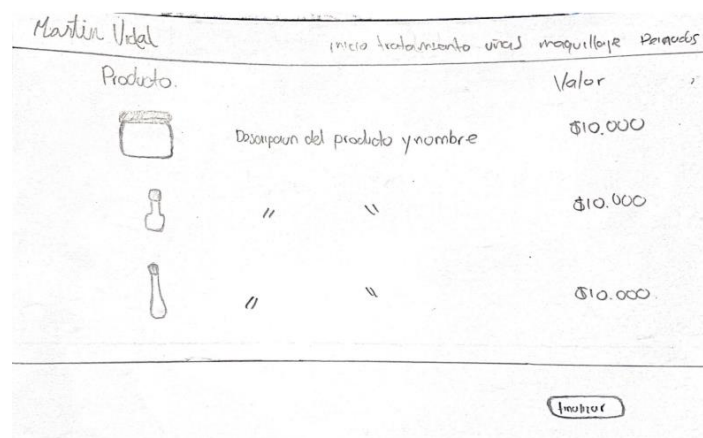 Martin Vidal
inicio tratamiento uñas maquillaje Peinados
Producto. Valor
Descripcion del producto y nombre $10.000
" " $10.000
" " $10.000
Finalizar